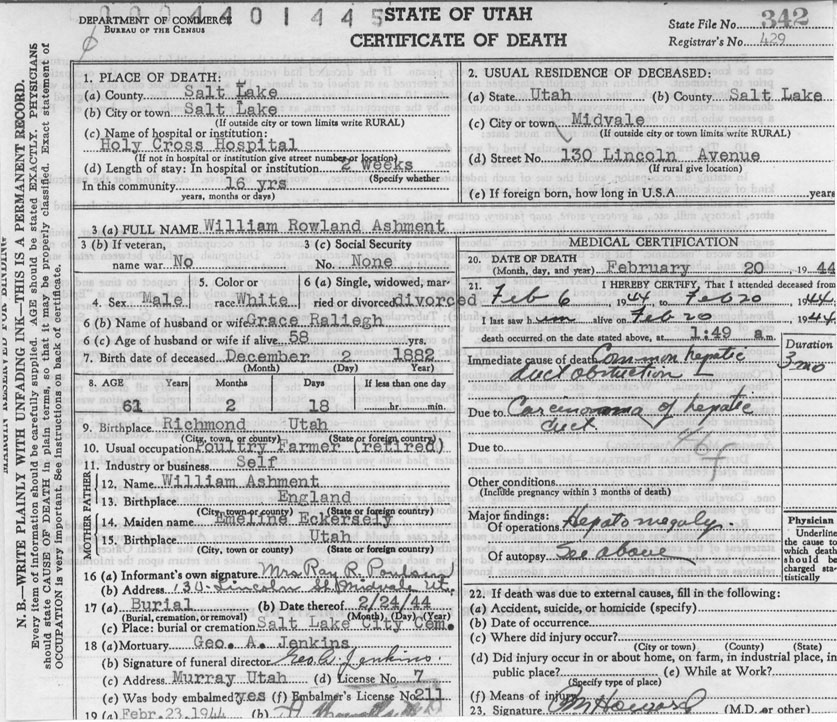 0004401445
DEPARTMENT OF COMMERCE
BUREAU OF THE CENSUS
STATE OF UTAH
CERTIFICATE OF DEATH
State File No. 342
Registrar's No. 429
MARGIN RESERVED FOR BINDING
N. B.—WRITE PLAINLY WITH UNFADING INK—THIS IS A PERMANENT RECORD.
Every item of information should be carefully supplied. AGE should be stated EXACTLY. PHYSICIANS
should state CAUSE OF DEATH in plain terms, so that it may be properly classified. Exact statement of
OCCUPATION is very important. See instructions on back of certificate.
1. PLACE OF DEATH:
(a) County Salt Lake
(b) City or town Salt Lake
(If outside city or town limits write RURAL)
(c) Name of hospital or institution:
Holy Cross Hospital
(If not in hospital or institution give street number or location)
(d) Length of stay: In hospital or institution 2 weeks
(Specify whether
In this community 16 yrs
years, months or days)
2. USUAL RESIDENCE OF DECEASED:
(a) State Utah (b) County Salt Lake
(c) City or town Midvale
(If outside city or town limits write RURAL)
(d) Street No. 130 Lincoln Avenue
(If rural give location)
(e) If foreign born, how long in U.S.A. years
3 (a) FULL NAME William Rowland Ashment
3 (b) If veteran, 3 (c) Social Security
name war No No. None
4. Sex Male 5. Color or race White 6 (a) Single, widowed, married or divorced divorced
6 (b) Name of husband or wife Grace Raliegh
6 (c) Age of husband or wife if alive 58 yrs.
7. Birth date of deceased December 2 1882
(Month) (Day) Year)
8. AGE Years Months Days If less than one day
61 2 18 hr. min.
9. Birthplace Richmond Utah
(City, town, or county) (State or foreign country)
10. Usual occupation Poultry Farmer (retired)
11. Industry or business Self
FATHER
12. Name William Ashment
13. Birthplace England
(City, town or county) (State or foreign country)
MOTHER
14. Maiden name Emeline Eckersely
15. Birthplace Utah
(City, town, or county) (State or foreign country)
16 (a) Informant's own signature Mrs Ray R.
(b) Address 130 Lincoln St Midvale Ut.
17 (a) Burial (b) Date thereof 2/24/44
(Burial, cremation, or removal) (Month) (Day) (Year)
(c) Place: burial or cremation Salt Lake City Cem.
18 (a) Mortuary Geo. A. Jenkins
(b) Signature of funeral director Geo. A. Jenkins.
(c) Address Murray Utah (d) License No. 7
(e) Was body embalmed? yes (f) Embalmer's License No. 211
19 (a) Febr. 23. 1944 (b)
MEDICAL CERTIFICATION
20. DATE OF DEATH
(Month, day, and year) February 20 , 1944
21. I HEREBY CERTIFY, That I attended deceased from
Feb 6 , 1944, to Feb 20 , 1944
I last saw him alive on Feb 20 , 1944
death occurred on the date stated above, at 1:49 a m.
Duration
Immediate cause of death Common hepatic 3 mo
duct obstruction
Due to Carcinoma of hepatic
duct
Due to
46f
Other conditions
(Include pregnancy within 3 months of death)
Major findings:
Of operations Hepatomegaly.
Of autopsy See above
Physician
Underline
the cause to
which death
should be
charged sta-
tistically
22. If death was due to external causes, fill in the following:
(a) Accident, suicide, or homicide (specify)
(b) Date of occurrence
(c) Where did injury occur?
(City or town) (County) (State)
(d) Did injury occur in or about home, on farm, in industrial place, in
public place? (e) While at Work?
(Specify type of place)
(f) Means of injury
23. Signature (M.D. or other)